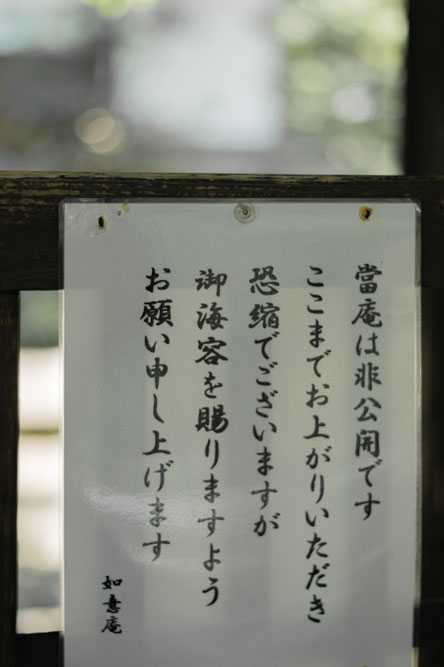 當庵は非公開です
ここまでお上がりいただき
恐縮でございますが
御海容を賜りますよう
お願い申し上げます
如意庵